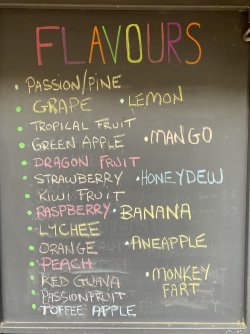 FLAVOURS
PASSION/PINE
GRAPE
LEMON
TROPICAL FRUIT
GREEN APPLE
MANGO
DRAGON FRUIT
STRAWBERRY
HONEYDEW
KIWI FRUIT
RASPBERRY
BANANA
LYCHEE
ORANGE
ANEAPPLE
PEACH
RED GUAVA
MONKEY
FART
PASSIONFRUIT
TOFFEE APPLE